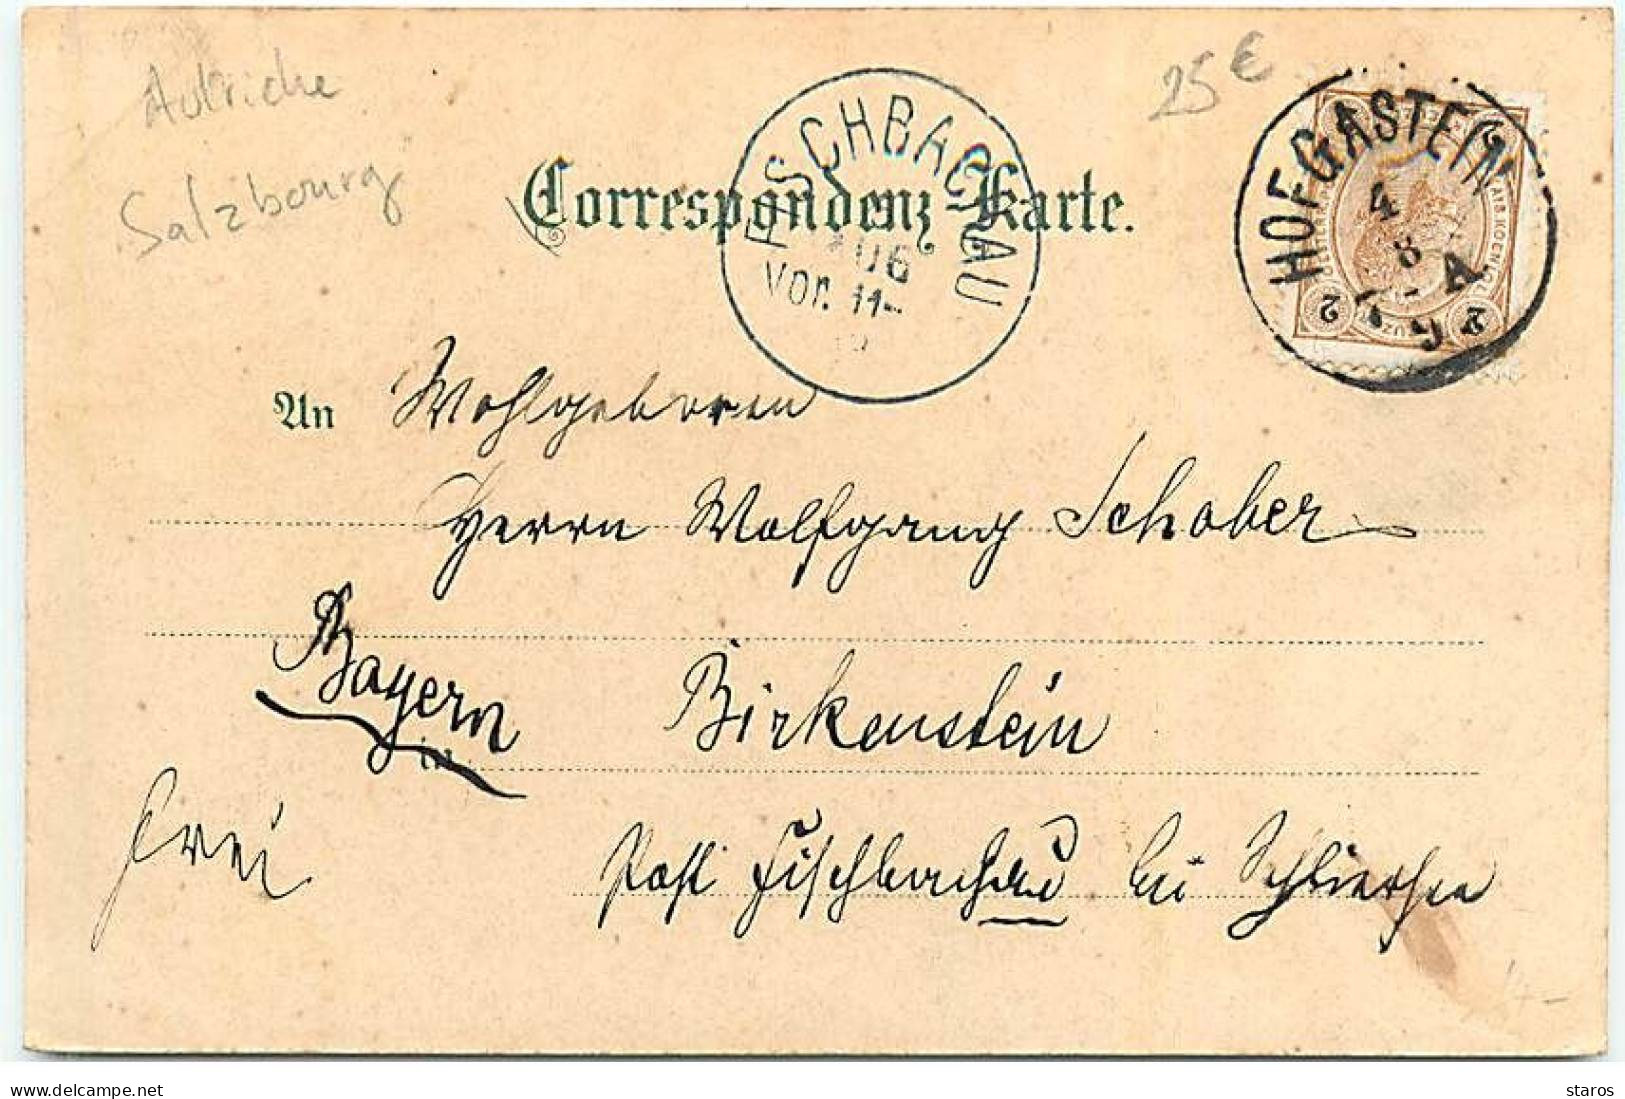 Autriche
Salzbourg
25 €
Correspondenz-Karte.
FISCHBACHAU
AUG
Vor. 11-
HOFGASTEIN
4
8
2 2
An Wohlgeboren
Herrn Wolfgang Schober
Bayern
Birkenstein
in
frei
Post Fischbachau bei Schliersee
delcampe.net
staros